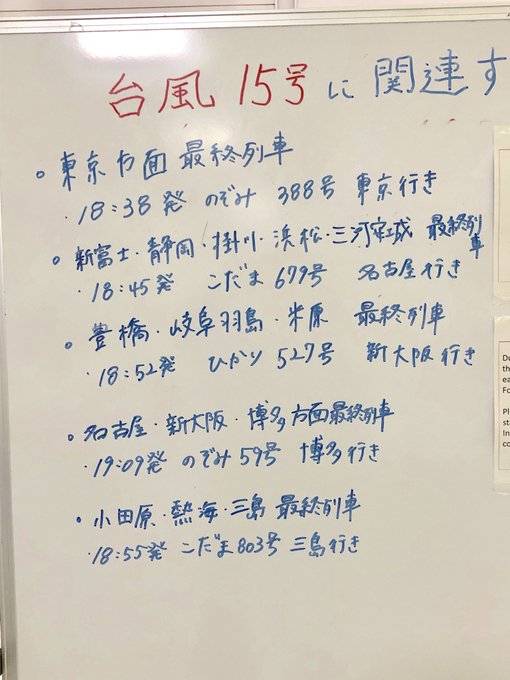 台風15号に関連す
・東京方面 最終列車
・18:38発 のぞみ 388号 東京行き
・新富士・静岡・掛川・浜松・三河安城 最終列車
・18:45発 こだま 679号 名古屋行き
・豊橋・岐阜羽島・米原 最終列車
・18:52発 ひかり 527号 新大阪行き
・名古屋・新大阪・博多方面最終列車
・19:09発 のぞみ 59号 博多行き
・小田原・熱海・三島 最終列車
・18:55発 こだま803号 三島行き
Du
the
ea
Fo
Pl
sta
In
co